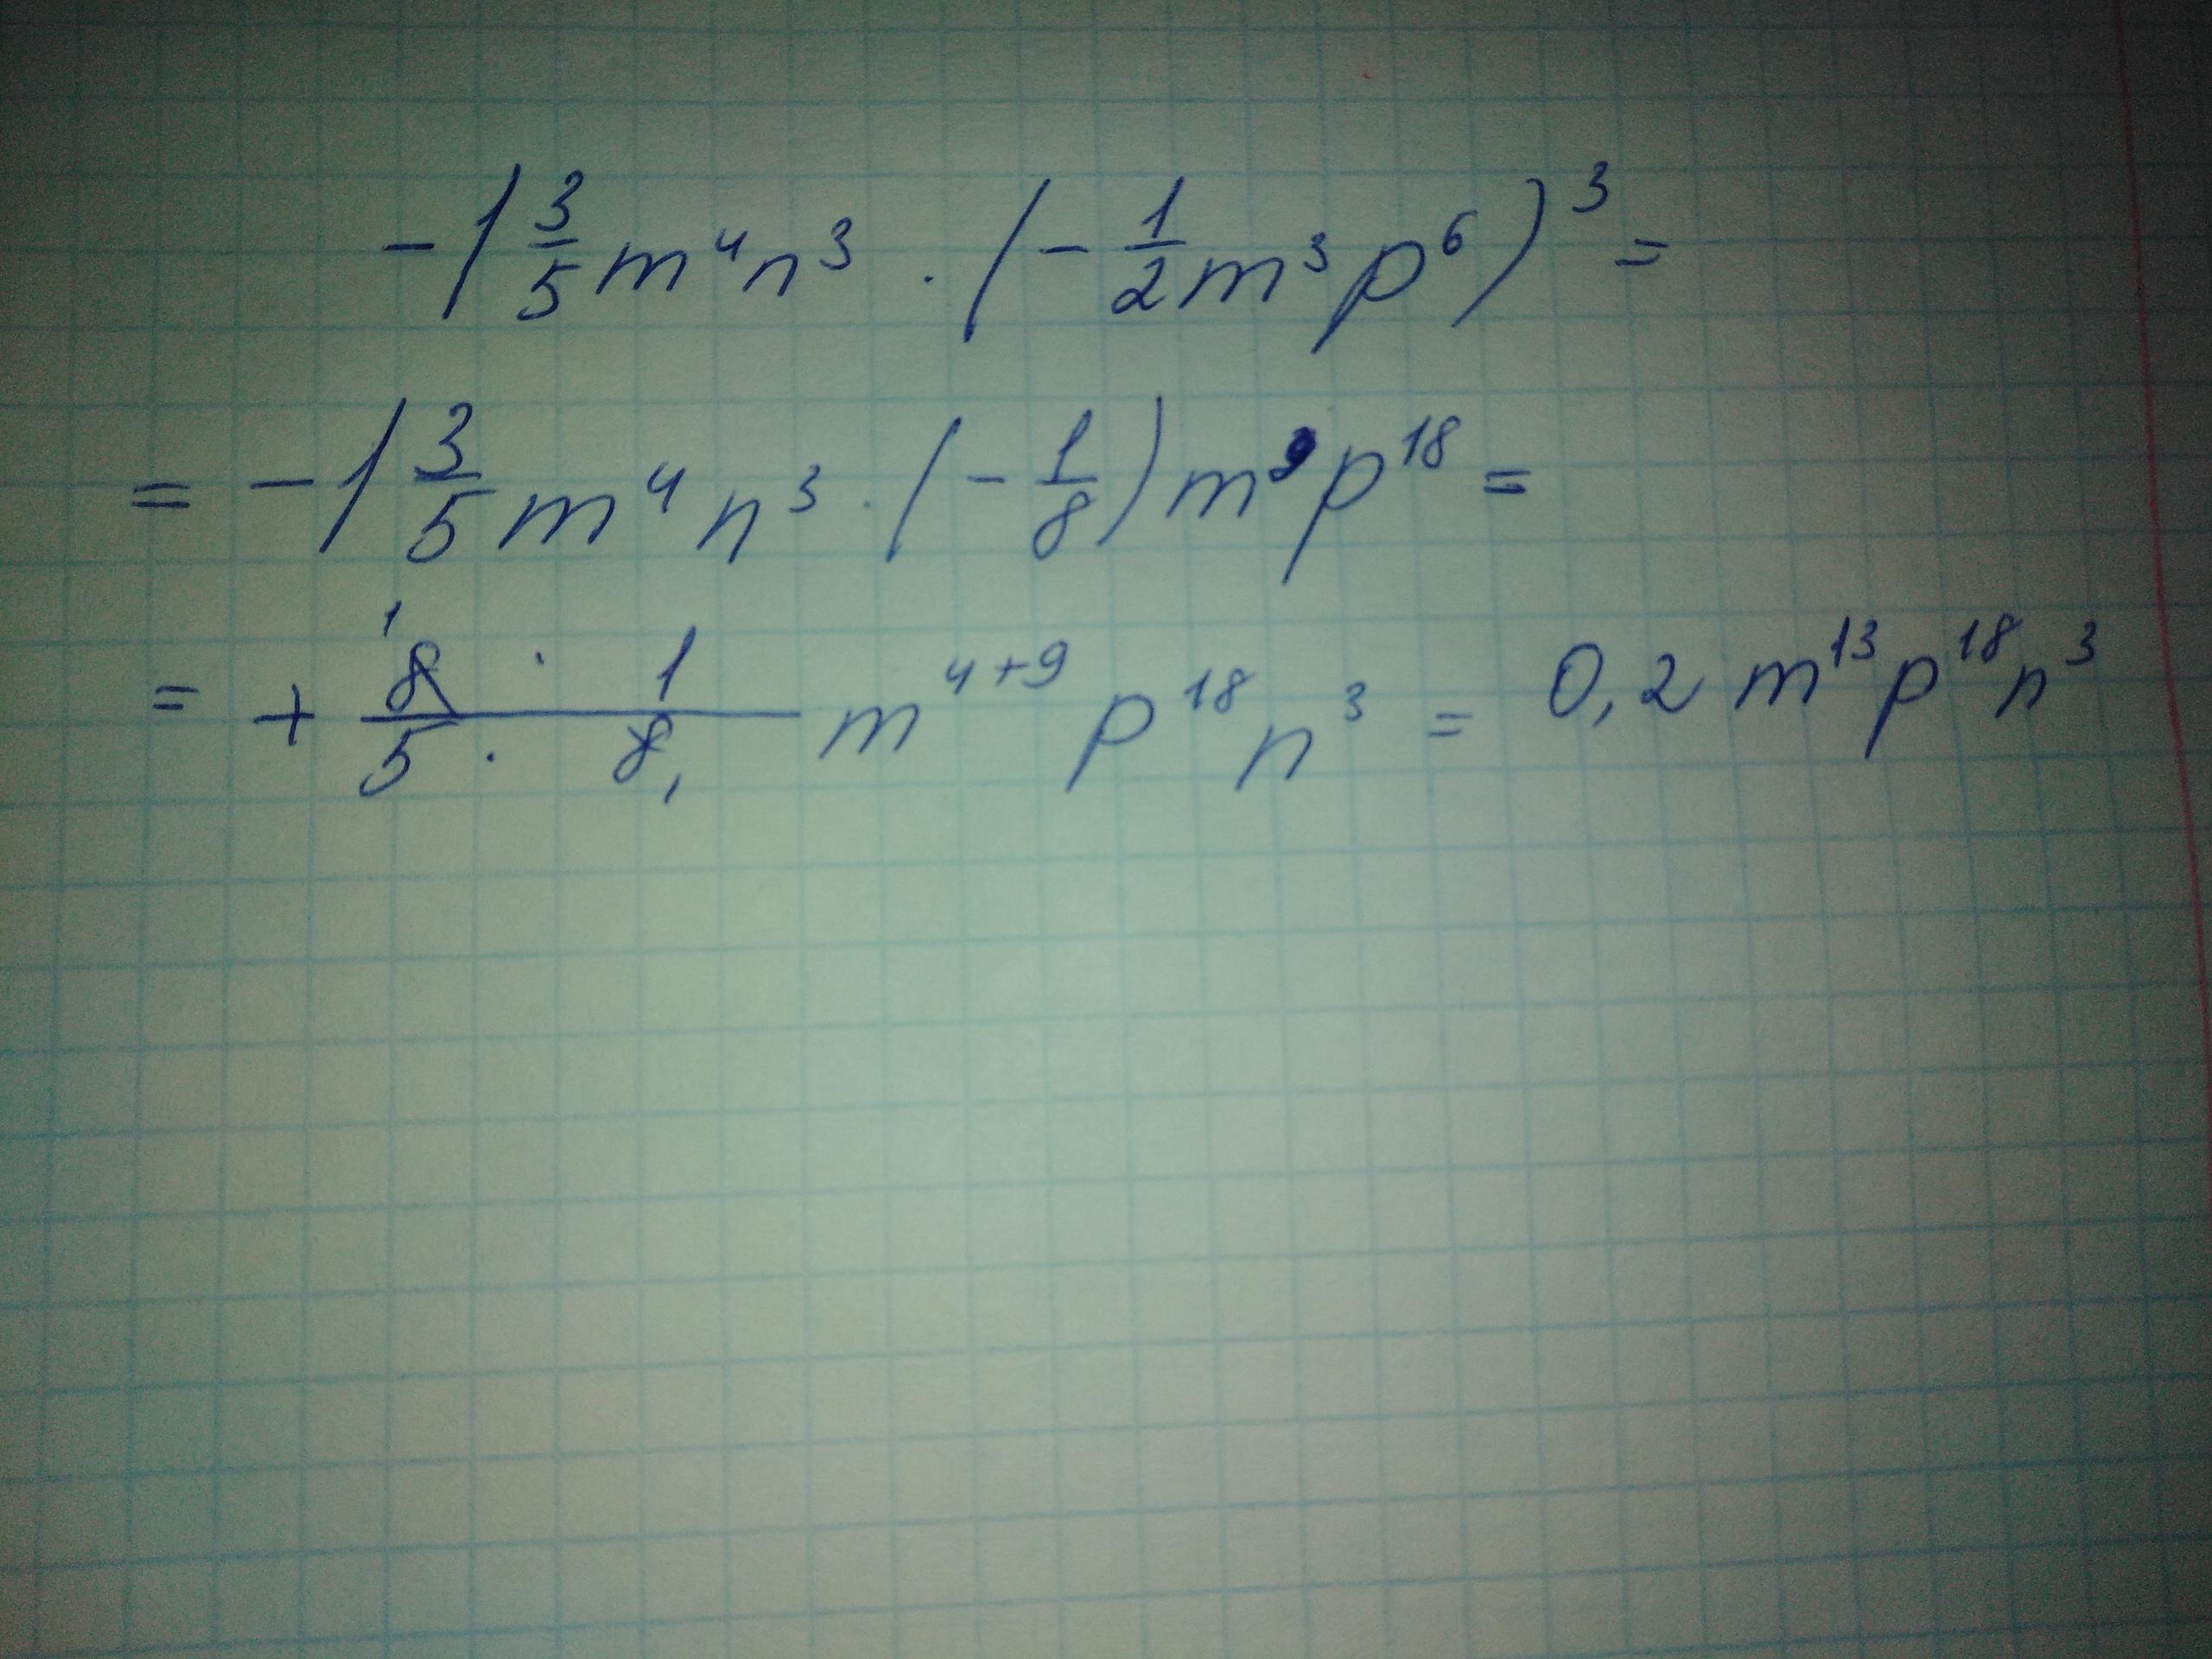 -1 3/5 m⁴n³ · (- 1/2 m³p⁶)³ =
= -1 3/5 m⁴n³ · (- 1/8) m⁹p¹⁸ =
= + 8 · 1 / 5 · 8 m⁴⁺⁹ p¹⁸n³ = 0,2 m¹³p¹⁸n³